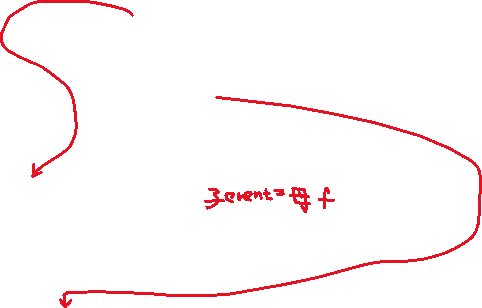 子event=母f